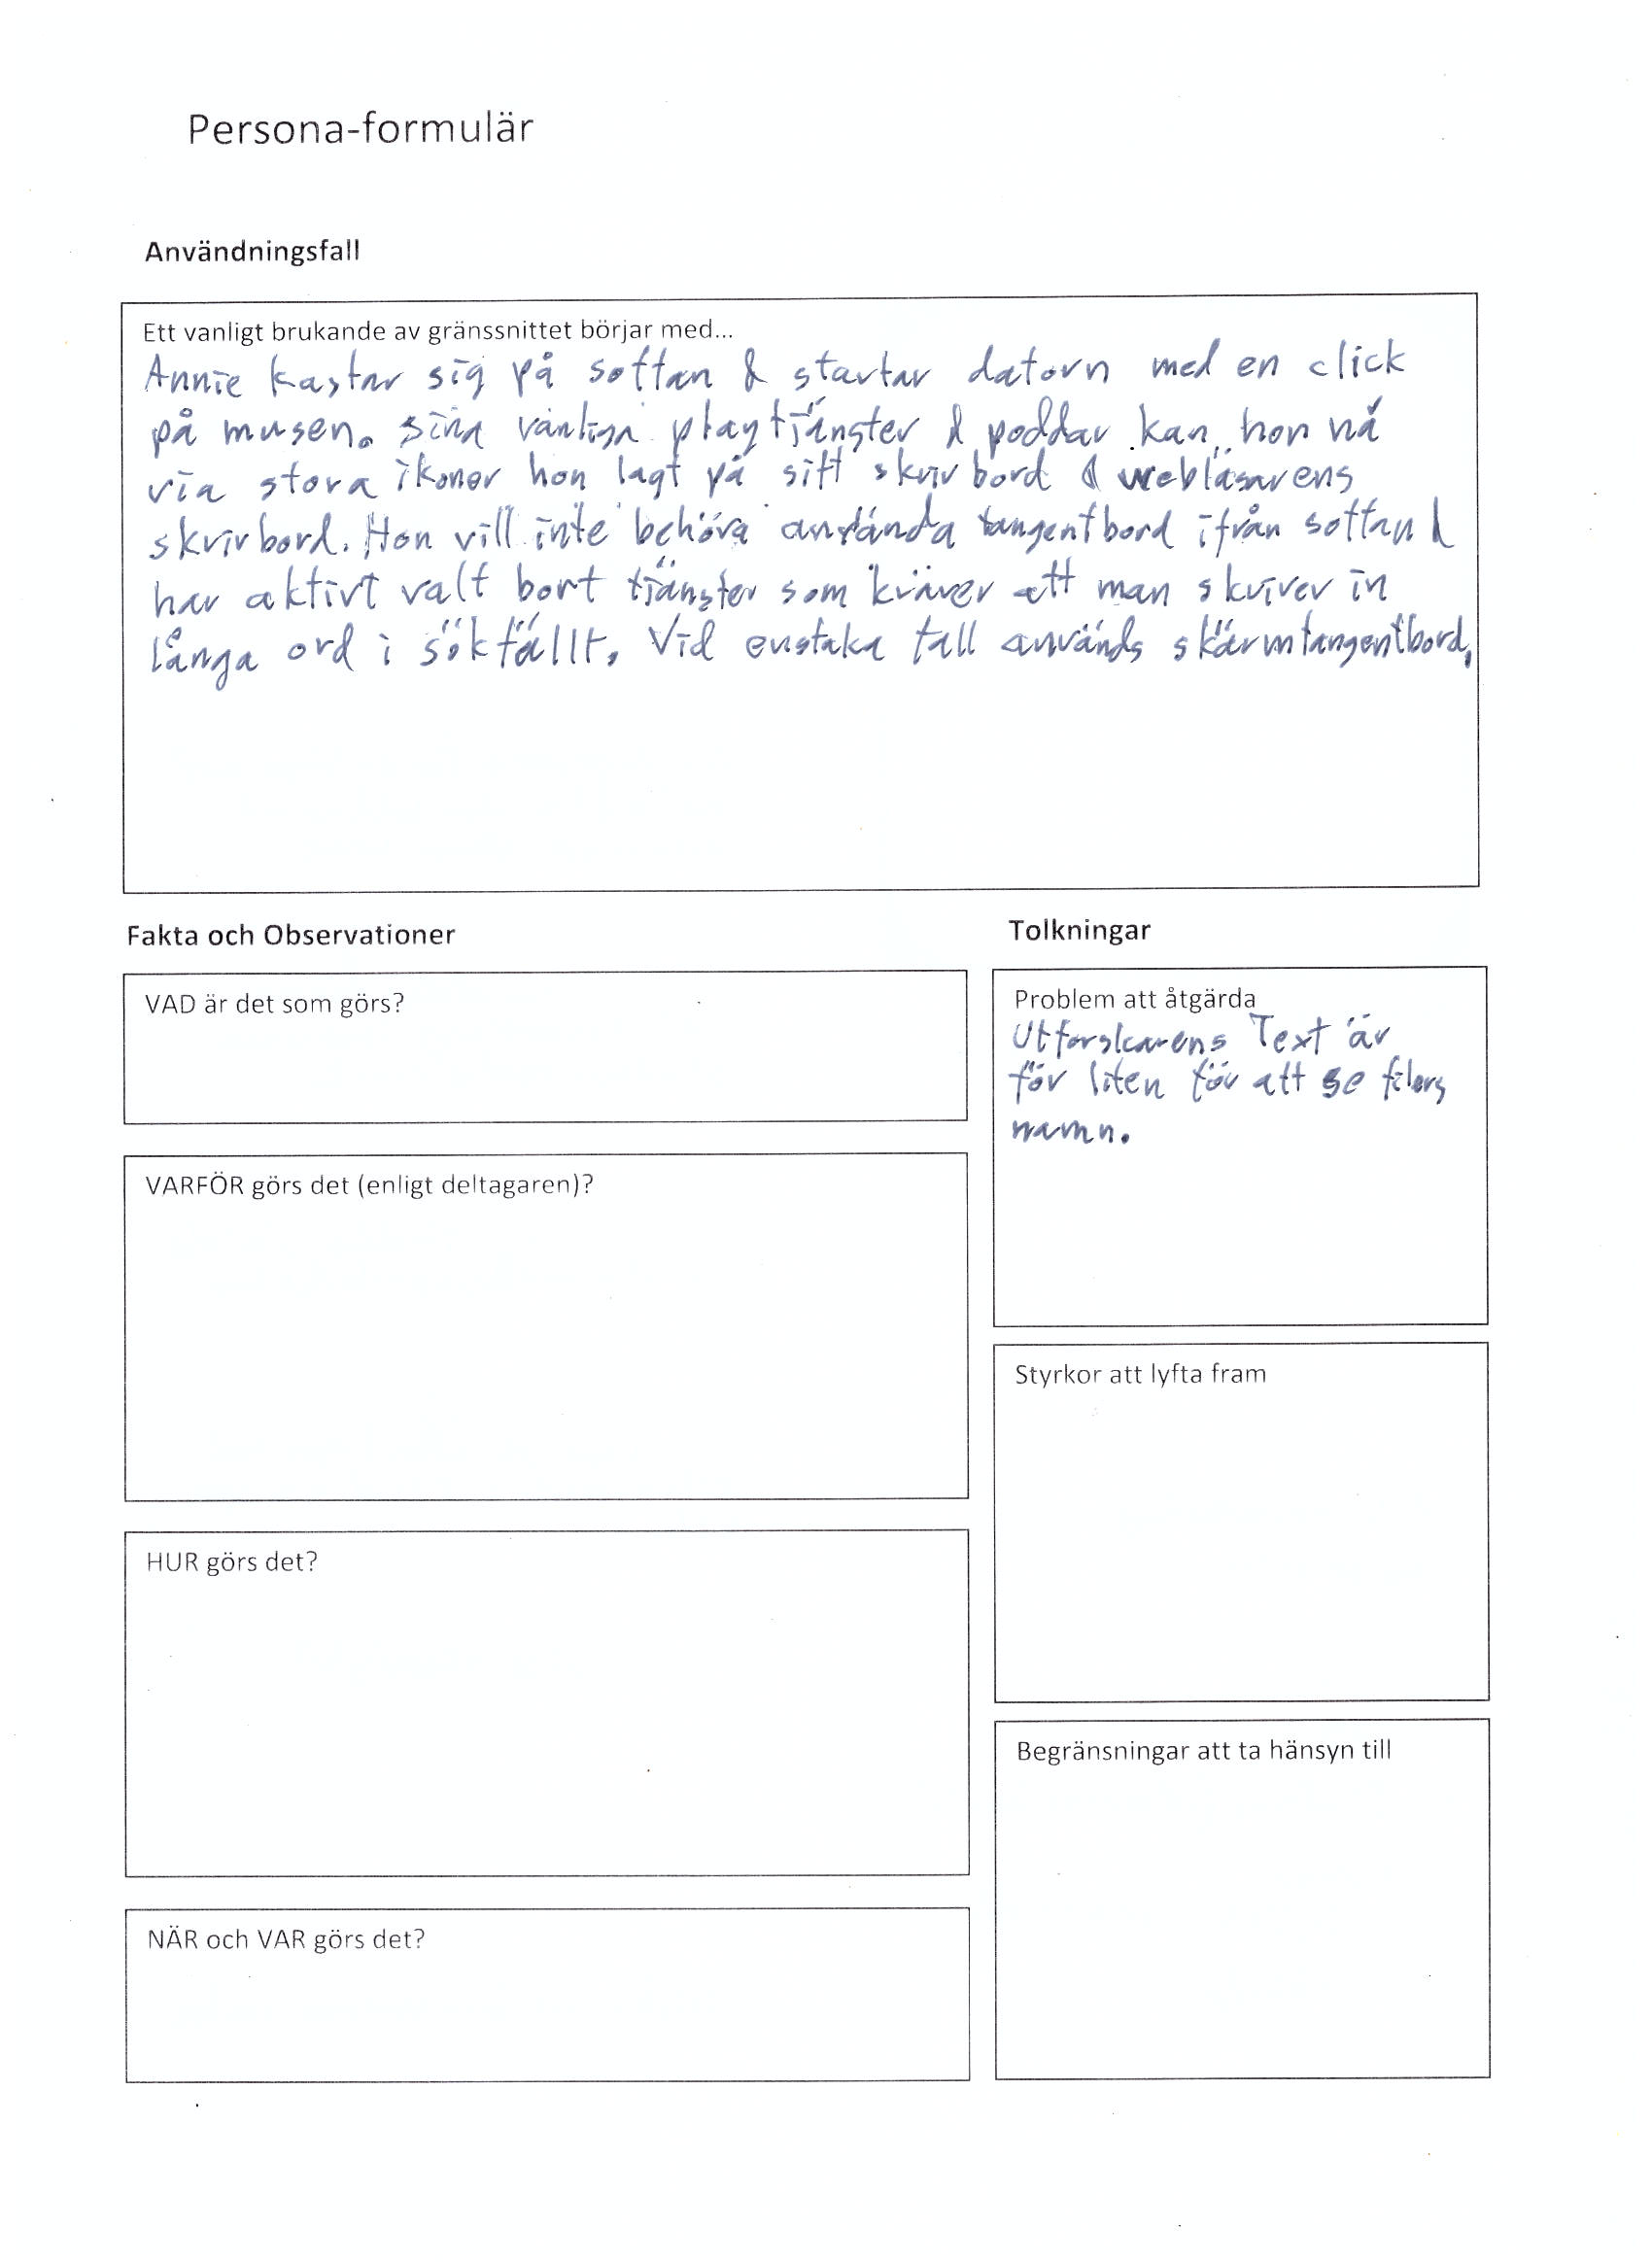 Persona-formulär
Användningsfall
Ett vanligt brukande av gränssnittet börjar med...
Annie kastar sig på soffan & startar datorn med en click
på musen. Sina vanliga playtjänster & poddar kan hon nå
via stora ikoner hon lagt på sitt skrivbord & webläsarens
skrivbord. Hon vill inte behöva använda tangentbord ifrån soffan &
har aktivt valt bort tjänster som kräver att man skriver in
långa ord i sökfällt. Vid enstaka fall används skärmtangentbord.
Fakta och Observationer
VAD är det som görs?
VARFÖR görs det (enligt deltagaren)?
HUR görs det?
NÄR och VAR görs det?
Tolkningar
Problem att åtgärda
Utforskarens Text är
för liten för att se filers
namn.
Styrkor att lyfta fram
Begränsningar att ta hänsyn till